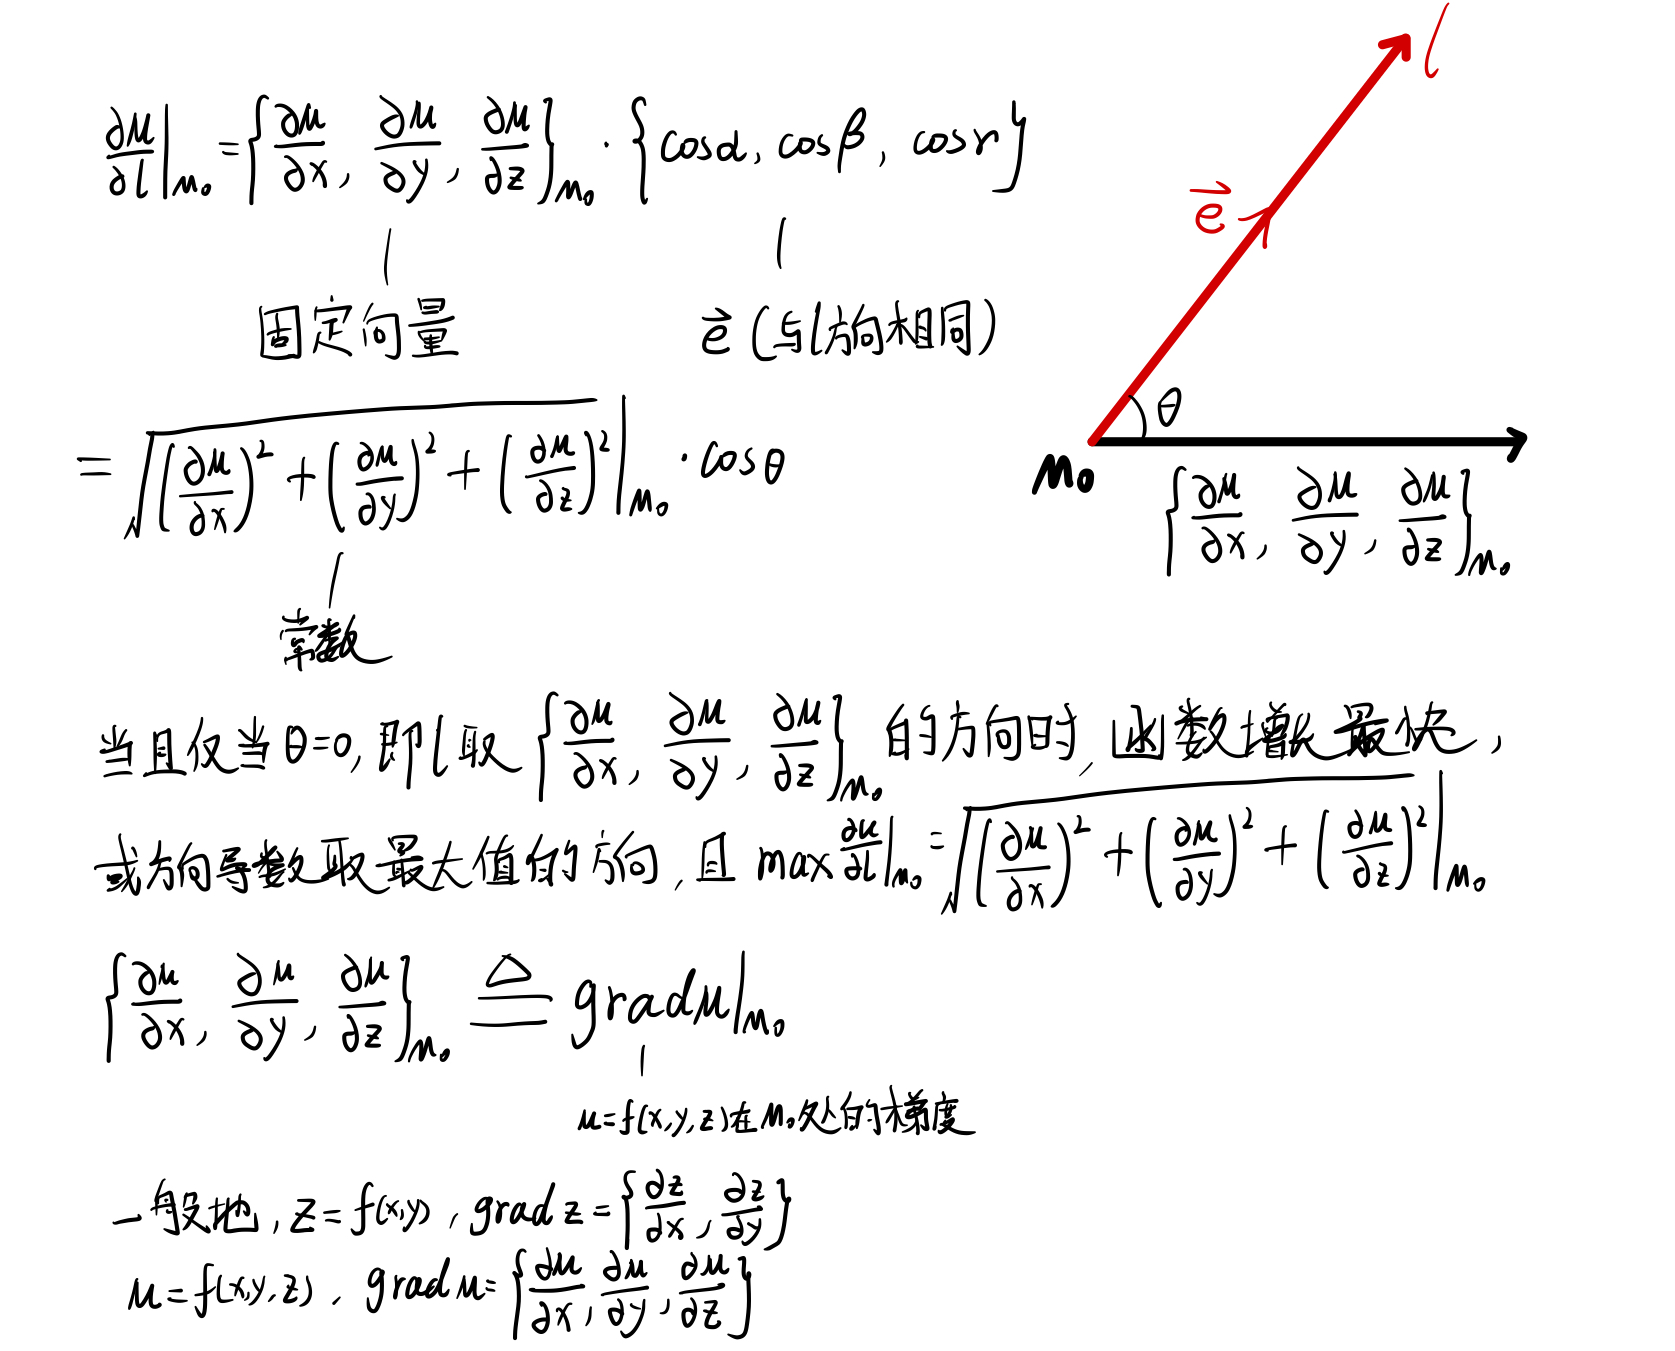 ∂u/∂l|M₀ = {∂u/∂x, ∂u/∂y, ∂u/∂z}M₀ · {cosα, cosβ, cosγ}
固定向量
e⃗ (与l方向相同)
= √((∂u/∂x)² + (∂u/∂y)² + (∂u/∂z)²)|M₀ · cosθ
常数
l
e⃗
θ
M₀
{∂u/∂x, ∂u/∂y, ∂u/∂z}M₀
当且仅当θ=0, 即l取{∂u/∂x, ∂u/∂y, ∂u/∂z}M₀的方向时, 函数增长最快,
或方向导数取最大值的方向, 且 max ∂u/∂l|M₀ = √((∂u/∂x)² + (∂u/∂y)² + (∂u/∂z)²)|M₀
{∂u/∂x, ∂u/∂y, ∂u/∂z}M₀ ≜ gradu|M₀
u=f(x,y,z)在M₀处的梯度
一般地, z=f(x,y), grad z={∂z/∂x, ∂z/∂y}
u=f(x,y,z), grad u={∂u/∂x, ∂u/∂y, ∂u/∂z}